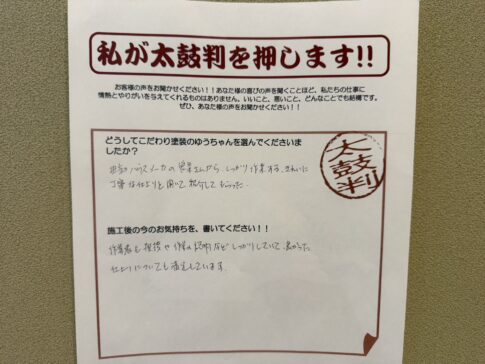 私が太鼓判を押します!!
お客様の声をお聞かせください!!あなた様の喜びの声を聞くことほど、私たちの仕事に
情熱とやりがいを与えてくれるものはありません。いいこと、悪いこと、どんなことでも結構です。
ぜひ、あなた様の声をお聞かせください!!
どうしてこだわり塗装のゆうちゃんを選んでくださいま
したか?
太鼓判
ハウスメーカの営業さんから、しっかり作業する、きれいに
丁寧な仕上りと聞いて紹介してもらった。
施工後の今のお気持ちを、書いてください!!
作業者も挨拶や作業の説明などしっかりしていて良かった
仕上りについても満足しています。